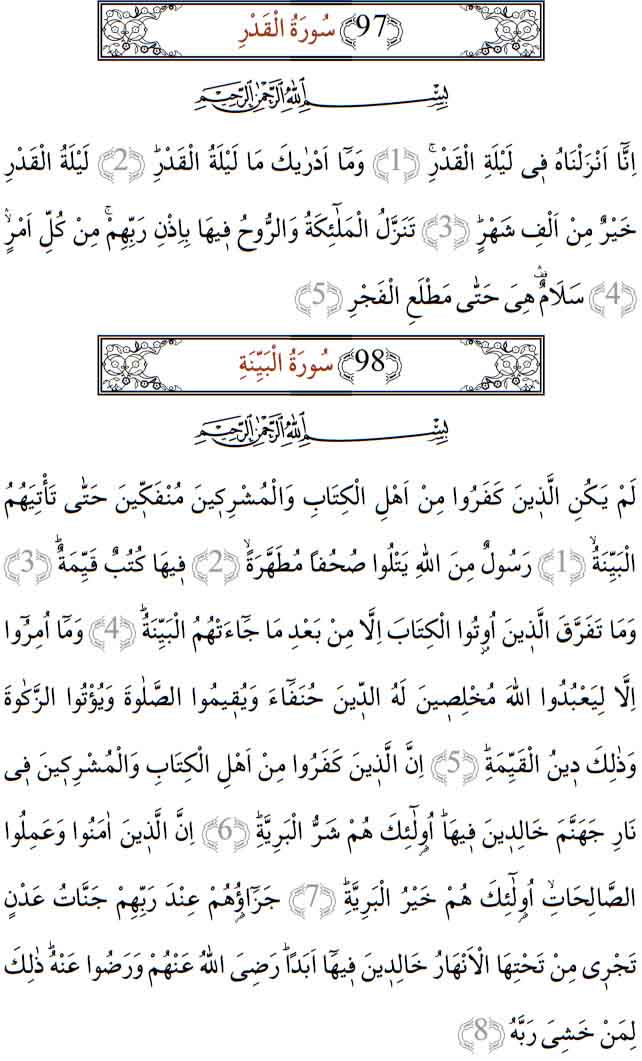 97 سُورَةُ الْقَدْرِ
بِسْمِ اللهِ الرَّحْمٰنِ الرَّحِيمِ
اِنَّٓا اَنْزَلْنَاهُ ف۪ى لَيْلَةِ الْقَدْرِۚ (1) وَمَٓا اَدْرٰيكَ مَا لَيْلَةُ الْقَدْرِۜ (2) لَيْلَةُ الْقَدْرِ
خَيْرٌ مِنْ اَلْفِ شَهْرٍۜ (3) تَنَزَّلُ الْمَلٰٓئِكَةُ وَالرُّوحُ ف۪يهَا بِاِذْنِ رَبِّهِمْۚ مِنْ كُلِّ اَمْرٍۙ
(4) سَلَامٌ۠ هِىَ حَتّٰى مَطْلَعِ الْفَجْرِ (5)
98 سُورَةُ الْبَيِّنَةِ
بِسْمِ اللهِ الرَّحْمٰنِ الرَّحِيمِ
لَمْ يَكُنِ الَّذ۪ينَ كَفَرُوا مِنْ اَهْلِ الْكِتَابِ وَالْمُشْرِك۪ينَ مُنْفَكّ۪ينَ حَتّٰى تَأْتِيَهُمُ
الْبَيِّنَةُۙ (1) رَسُولٌ مِنَ اللهِ يَتْلُوا صُحُفاً مُطَهَّرَةًۙ (2) ف۪يهَا كُتُبٌ قَيِّمَةٌۜ (3)
وَمَا تَفَرَّقَ الَّذ۪ينَ اُو۫تُوا الْكِتَابَ اِلَّا مِنْ بَعْدِ مَا جَٓاءَتْهُمُ الْبَيِّنَةُۜ (4) وَمَٓا اُمِرُٓوا
اِلَّا لِيَعْبُدُوا اللهَ مُخْلِص۪ينَ لَهُ الدّ۪ينَ حُنَفَٓاءَ وَيُق۪يمُوا الصَّلٰوةَ وَيُؤْتُوا الزَّكٰوةَ
وَذٰلِكَ د۪ينُ الْقَيِّمَةِۜ (5) اِنَّ الَّذ۪ينَ كَفَرُوا مِنْ اَهْلِ الْكِتَابِ وَالْمُشْرِك۪ينَ ف۪ى
نَارِ جَهَنَّمَ خَالِد۪ينَ ف۪يهَاۜ اُو۬لٰٓئِكَ هُمْ شَرُّ الْبَرِيَّةِۜ (6) اِنَّ الَّذ۪ينَ اٰمَنُوا وَعَمِلُوا
الصَّالِحَاتِۙ اُو۬لٰٓئِكَ هُمْ خَيْرُ الْبَرِيَّةِۜ (7) جَزَٓاؤُ۬هُمْ عِنْدَ رَبِّهِمْ جَنَّاتُ عَدْنٍ
تَجْر۪ى مِنْ تَحْتِهَا الْاَنْهَارُ خَالِد۪ينَ ف۪يهَٓا اَبَداًۜ رَضِىَ اللهُ عَنْهُمْ وَرَضُوا عَنْهُۜ ذٰلِكَ
لِمَنْ خَشِىَ رَبَّهُ (8)